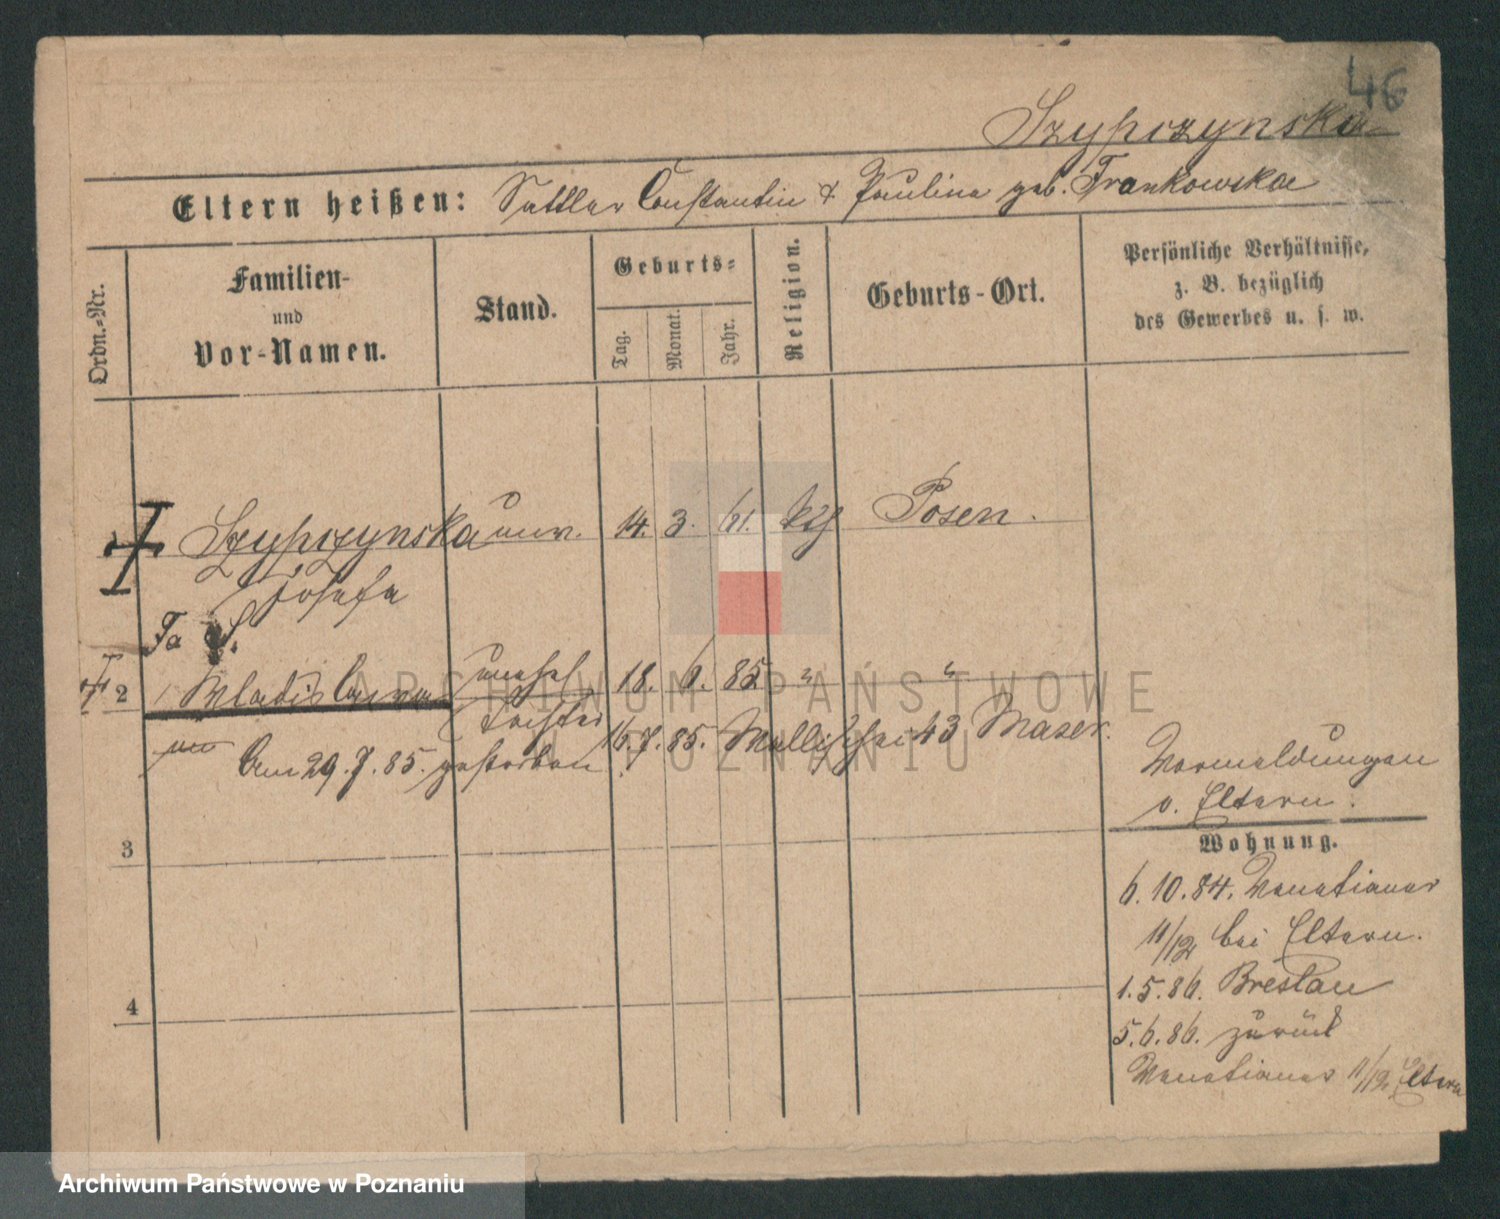 46
Szypczynska
Eltern heißen: Sattler Constantin & Paulina geb. Frankowska
Ordn.-Nr.
Familien-
und
Vor-Namen.
Stand.
Geburts-
Tag.
Monat.
Jahr.
Religion.
Geburts-Ort.
Persönliche Verhältnisse,
z. B. bezüglich
des Gewerbes u. s. w.
Szypczynska unv. 14. 3. 61. kth Posen.
Josefa
2 Wladislawa unehel 18. 6. 85 " "
Tochter
16.7.85. Wallischei 43 Maser.
Am 29.7.85. gestorben
3
4
Vormeldungen
v. Eltern.
Wohnung.
6.10.84. Venetianer
11/12 bei Eltern.
1.5.86. Breslau
5.6.86. zurück
Venetianer 11/12 Eltern
ARCHIWUM PAŃSTWOWE
W POZNANIU
Archiwum Państwowe w Poznaniu